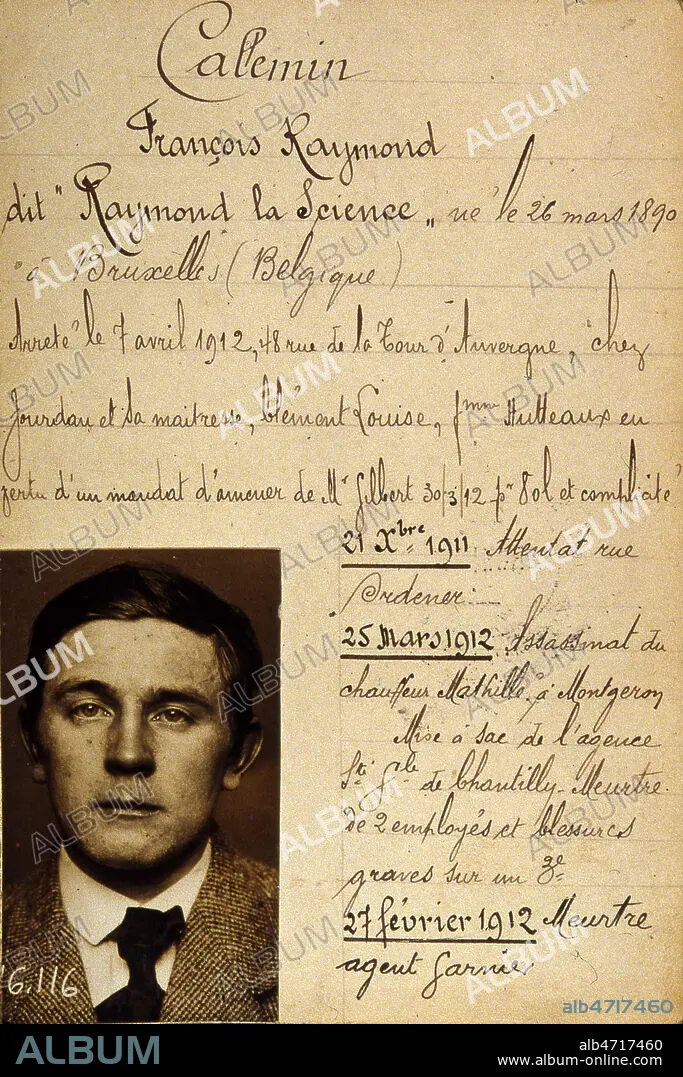 Callemin
François Raymond
dit " Raymond la Science „ né le 26 mars 1890
à Bruxelles (Belgique)
Arrêté le 7 avril 1912, 48 rue de la Tour d'Auvergne, chez
Jourdan et sa maitresse, Clément Louise, fmme Hutteaux en
vertu d'un mandat d'amener de Mr Gilbert 30/3/12 pr vol et complicité
21 Xbre 1911 Attentat rue
Ordener
25 Mars 1912 Assassinat du
chauffeur Mathillé, à Montgeron
Mise à sac de l'agence
Sté Gle de Chantilly - Meurtre
de 2 employés et blessures
graves sur un 3e
27 février 1912 Meurtre
agent Garnier
6.116
alb4717460
ALBUM
alb4717460
www.album-online.com